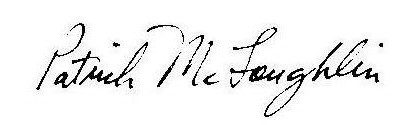 Patrick McLoughlin